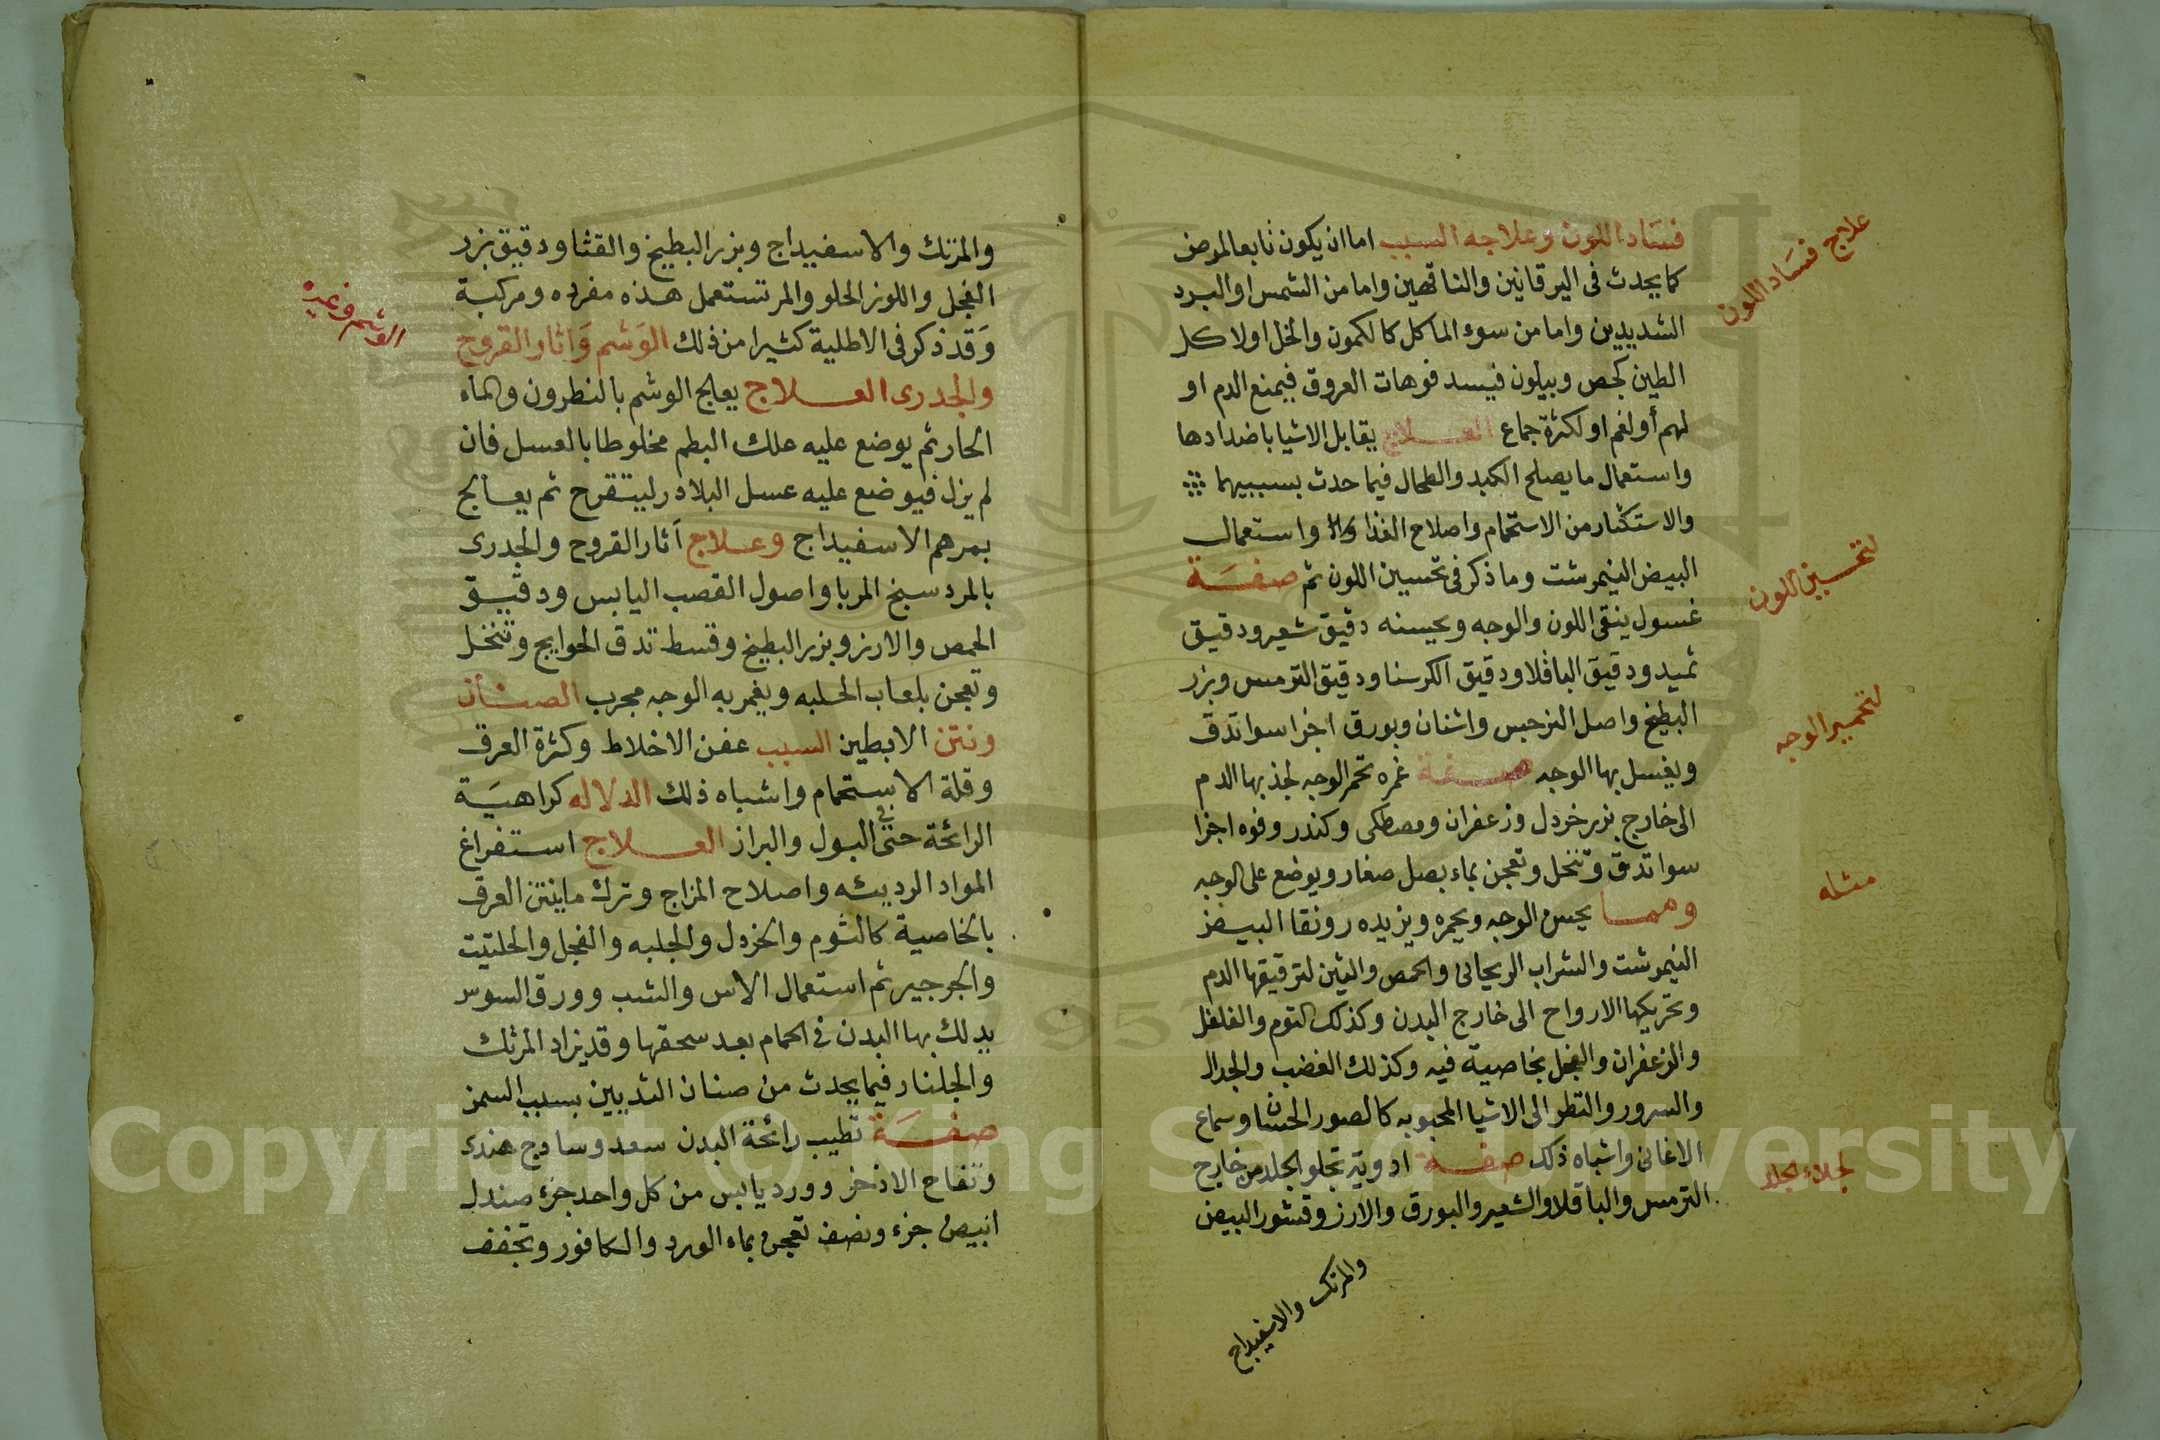 فساد اللون وعلاجه السبب اما ان يكون تابعا لمرض
كما يحدث فى اليرقانين والناقهين واما من الشمس او البرد
الشديدين واما من سوء الماكل كالكمون والخل او لاكل
الطين كجص وبيلون فيسد فوهات العروق فيمنع الدم او
لهم أو لغم او لكثرة جماع العلاج يقابل الاشيا باضدادها
واستعمال ما يصلح الكبد والطحال فيما حدث بسببيهما
والاستكثار من الاستحمام واصلاح الغذا واستعمال
البيض النيمرشت وما ذكر فى تحسين اللون ثم صفة
غسول ينقى اللون والوجه ويحسنه دقيق شعير ودقيق
ثميد ودقيق الباقلا ودقيق الكرسنا ودقيق الترمس وبزر
البطيخ واصل النرجس واشنان وبورق اجزا سوا تدق
ويغسل بها الوجه صفة غمره تحمر الوجه لجذبها الدم
الى خارج بزر خردل وزعفران ومصطكى وكندر وفوه اجزا
سوا تدق وتنخل وتعجن بماء بصل صغار ويوضع على الوجه
ومما يحسن الوجه ويحمره ويزيده رونقا البيض
النيمرشت والشراب الريحانى والحمص والتين لترقيقها الدم
وتحريكها الارواح الى خارج البدن وكذلك الثوم والفلفل
والزعفران والفجل بخاصية فيه وكذلك الغضب والجدال
والسرور والنظر الى الاشيا المحبوبه كالصور الحسان وسماع
الاغانى واشباه ذلك صفة ادوية تجلو الجلد من خارج
الترمس والباقلا والشعير والبورق والارز وقشور البيض
والمرتك والاسفيداج
علاج فساد اللون
لتحسين اللون
لتحمير الوجه
مثله
لجلاء الجلد
والمرتك والاسفيداج وبزر البطيخ والقثا ودقيق بزر
الفجل واللوز الحلو والمر تستعمل هذه مفرده ومركبة
وقد ذكر فى الاطلية كثيرا من ذلك الوشم واثار القروح
والجدرى العلاج يعالج الوشم بالنطرون والماء
الحار ثم يوضع عليه علك البطم مخلوطا بالعسل فان
لم يزل فيوضع عليه عسل البلادر ليتقرح ثم يعالج
بمرهم الاسفيداج وعلاج آثار القروح والجدرى
بالمردسنج المربا واصول القصب اليابس ودقيق
الحمص والارز وبزر البطيخ وقسط تدق الحوايج وتنخل
وتعجن بلعاب الحلبه ويغمر به الوجه مجرب الصنان
ونتن الابطين السبب عفن الاخلاط وكثرة العرق
وقلة الاستحمام واشباه ذلك الدلاله كراهية
الرائحة حتى فى البول والبراز العلاج استفراغ
المواد الرديئه واصلاح المزاج وترك ما ينتن العرق
بالخاصية كالثوم والخردل والحلبه والفجل والحلتيت
والجرجير ثم استعمال الاس والشب وورق السوس
يدلك بها البدن فى الحمام بعد سحقها وقد يزاد المرتك
والجلنار فيما يحدث من صنان الثديين بسبب السمن
صفة تطيب رائحة البدن سعد وسادج هندى
وتفاح الاذخر وورد يابس من كل واحد جزء صندل
ابيض جزء ونصف تعجن بماء الورد والكافور وتجفف
الوشم وغيره
Copyright © King Saud University
1957